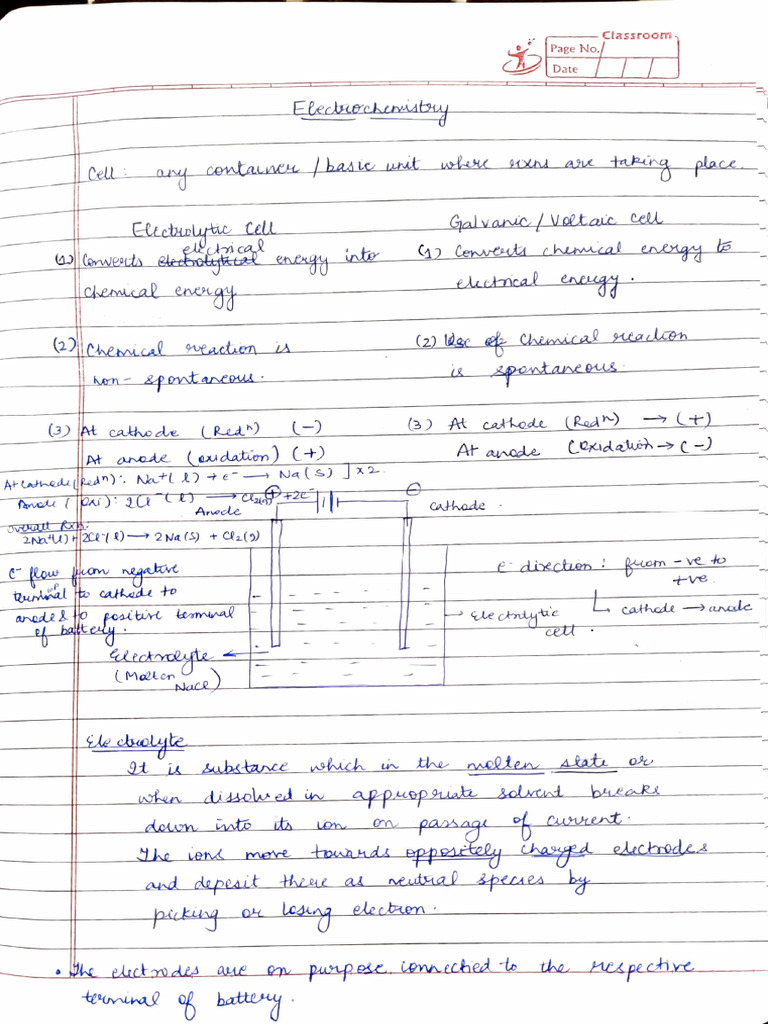 Classroom
Page No.
Date
Electrochemistry
Cell: any container / basic unit where rxns are taking place.
Electrolytic Cell
Galvanic / Voltaic cell
(1) Converts electrolytical electrical energy into
chemical energy
(1) Converts chemical energy to
electrical energy.
(2) Chemical reaction is
non-spontaneous.
(2) Chemical reaction
is spontaneous.
(3) At cathode (Redⁿ) (-)
At anode (oxidation) (+)
(3) At cathode (Redⁿ) → (+)
At anode (oxidation → (-)
At cathode (Redⁿ): Na⁺(l) + e⁻ → Na(s) ] x 2
Anode (Oxi): 2Cl⁻(l) → Cl₂(g) + 2e⁻
Overall Rxn:
2Na⁺(l) + 2Cl⁻(l) → 2Na(s) + Cl₂(g)
+
-
Anode
cathode.
e⁻ flow from negative
terminal to cathode to
anode & to positive terminal
of battery.
e⁻ direction: from -ve to
+ve
cathode → anode
→ Electrolytic
cell.
Electrolyte ←
(Molten
NaCl)
Electrolyte
It is substance which in the molten state or
when dissolved in appropriate solvent breaks
down into its ion on passage of current.
The ions move towards oppositely charged electrodes
and deposit there as neutral species by
picking or losing electron.
• The electrodes are on purpose connected to the respective
terminal of battery.